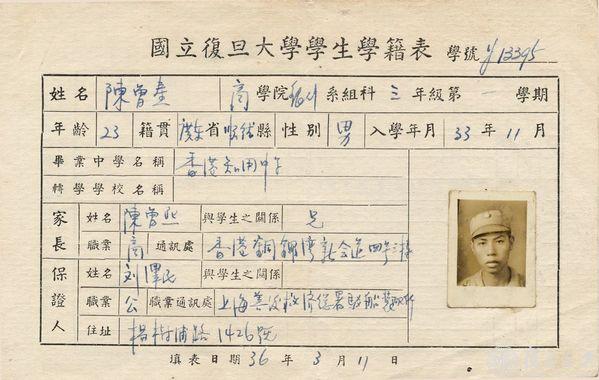 國立復旦大學學生學籍表 學號 y13395
姓名 陳曾 商 學院 銀行 系組科 三 年級第 一 學期
年齡 23 籍貫 廣東 省 順德 縣 性別 男 入學年月 33 年 11 月
畢業中學名稱 香港知用中學
轉學學校名稱
家長 姓名 陳曾熙 與學生之關係 兄
職業 商 通訊處 香港銅鑼灣 道四號三樓
保證人 姓名 刘澤民 與學生之關係
職業 公 職業通訊處 上海善後救濟總署
住址 楊樹浦路1426號
填表日期 36 年 3 月 11 日